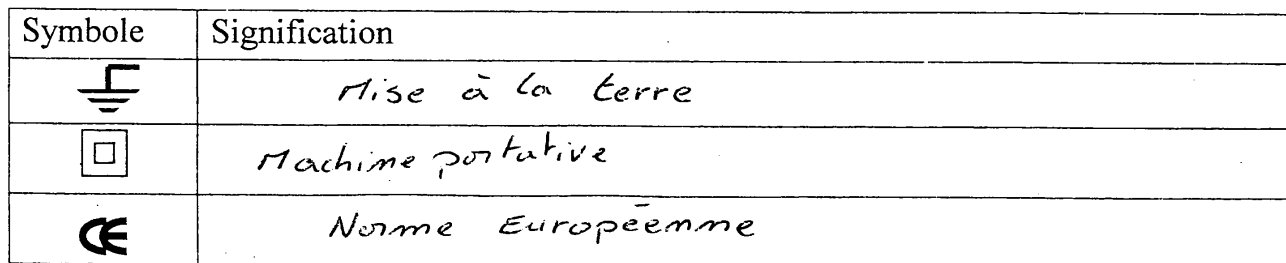 Symbole Signification
Mise à la terre
Machine portative
CE Norme Européenne